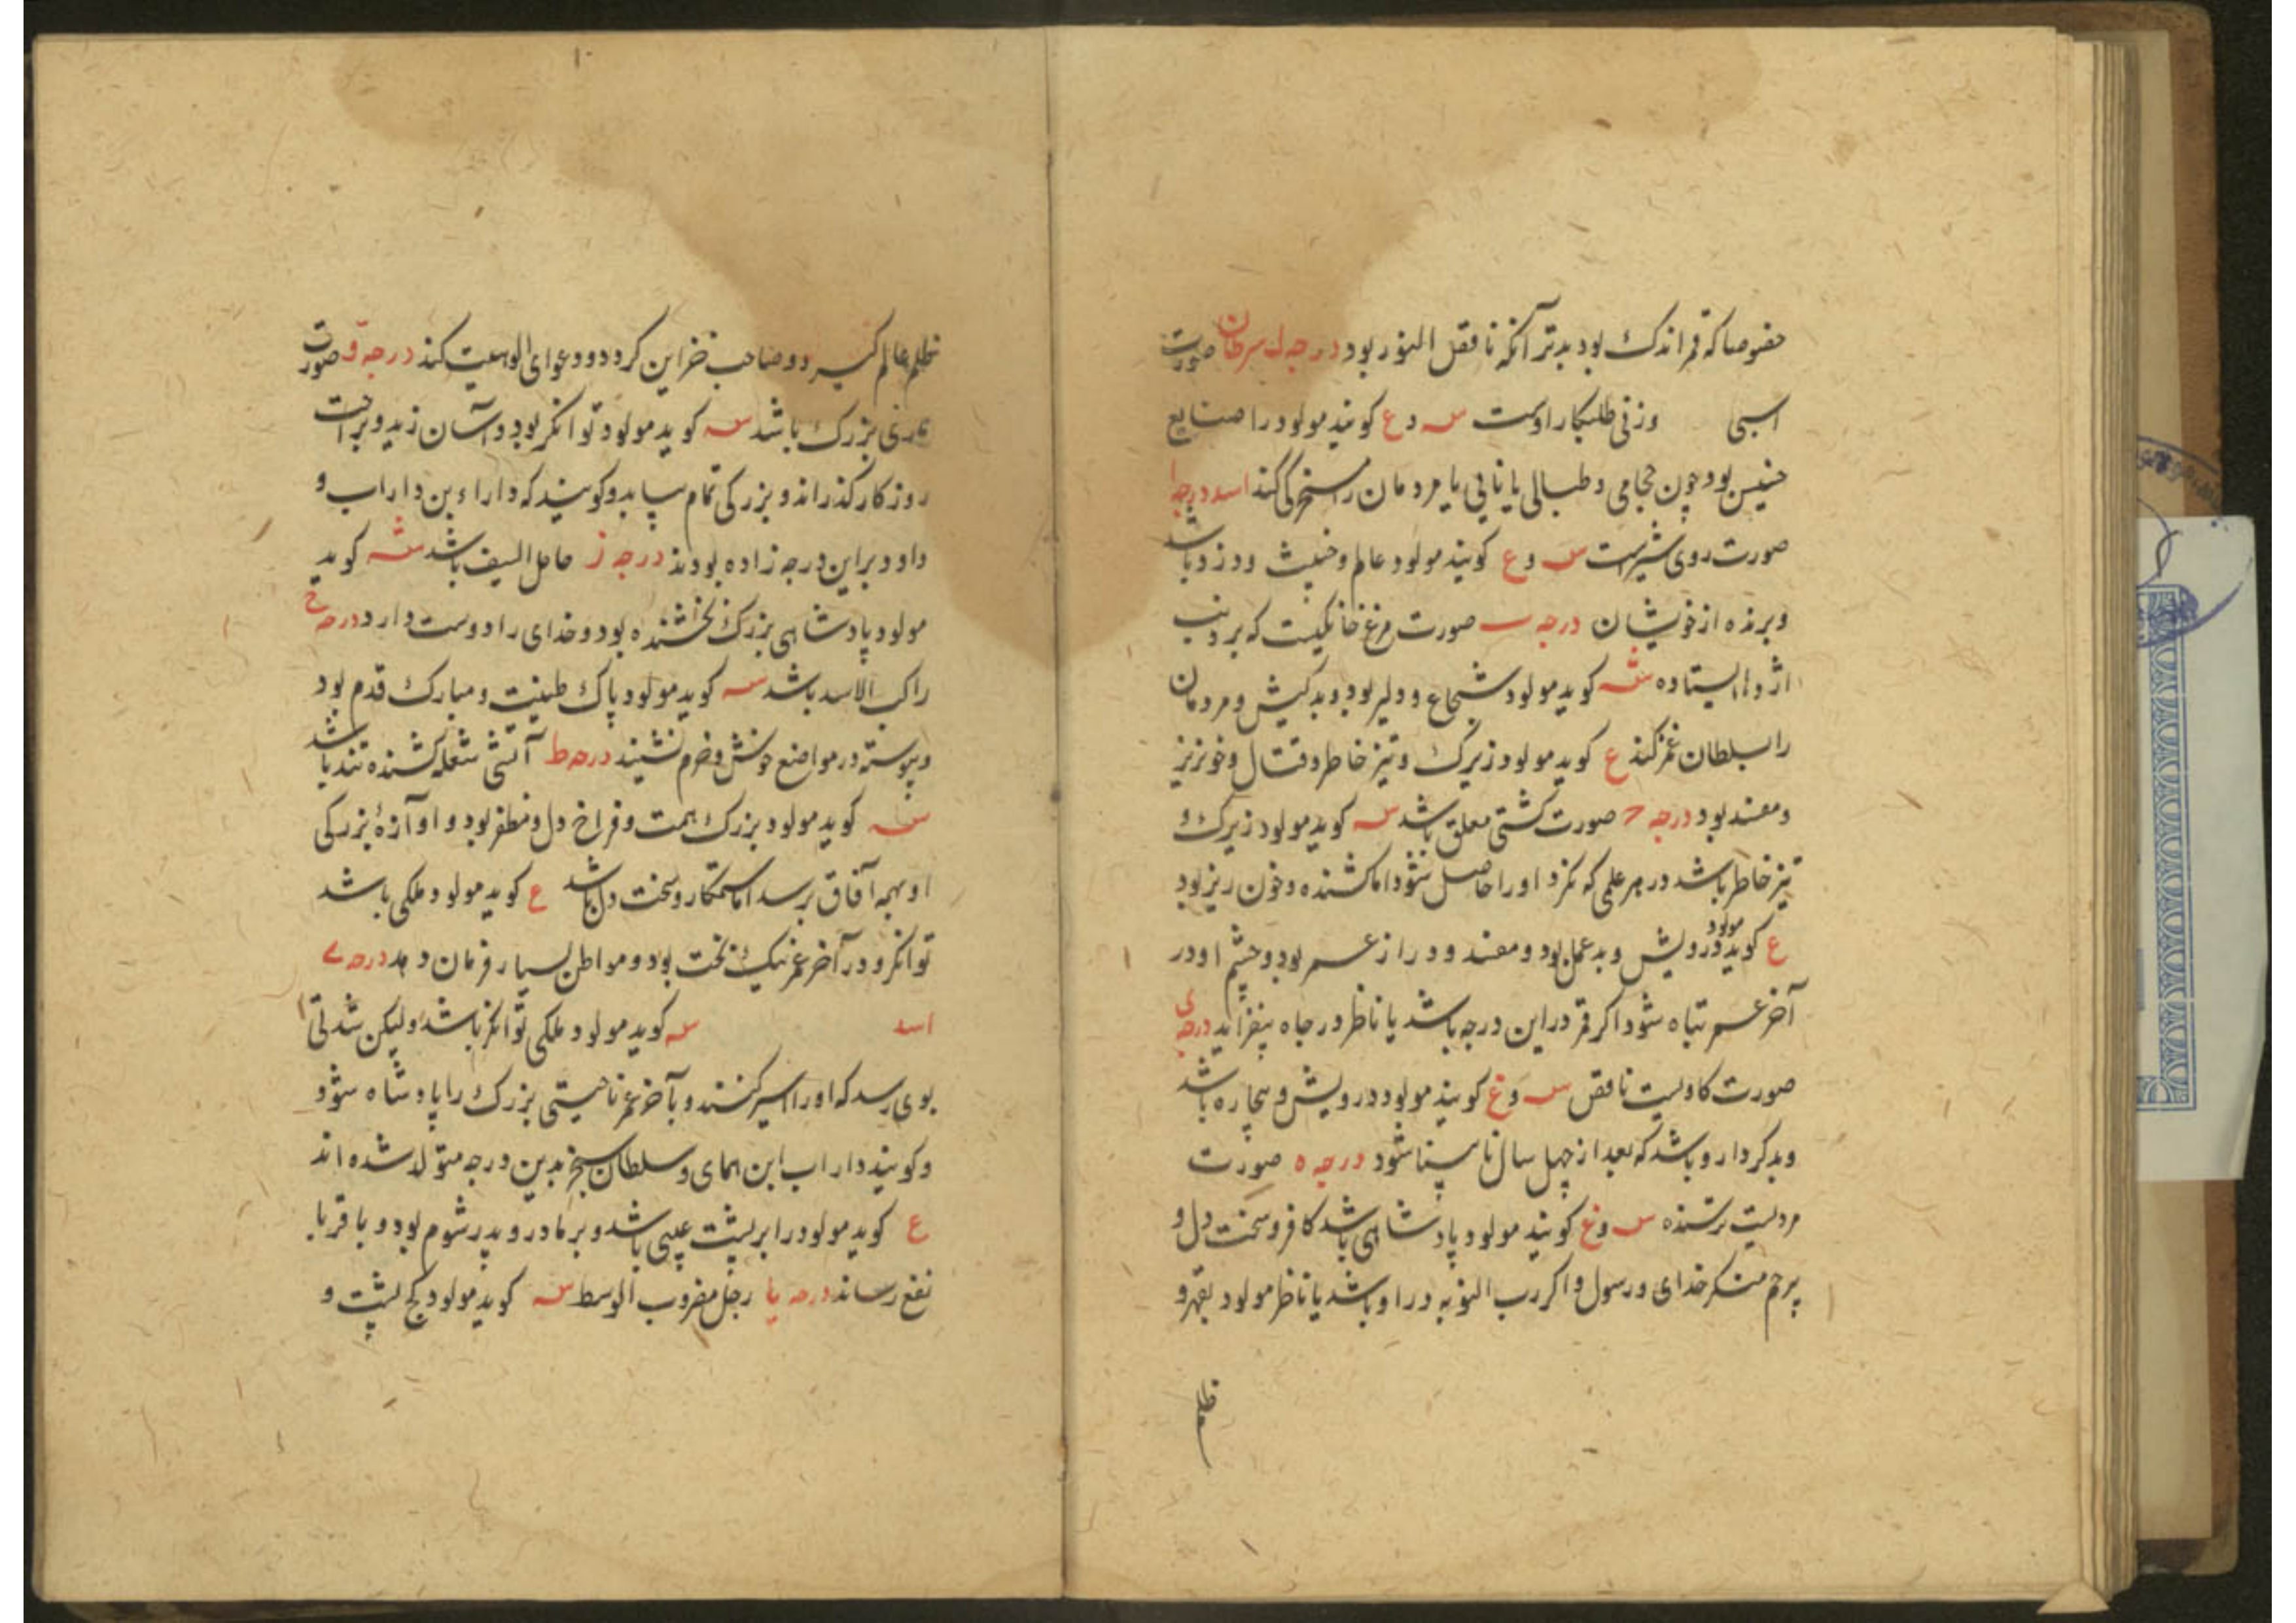 خصوصا که قمر اندک بود بدتر آنکه ناقص النور بود درجه ل سرطان صورت
اسبی وزنی طلبکار اوست س و ع کویند مولود را صنایع
خسیس بود چون حجامی و طبالی یا نایی یا مردمان را سخرکی کند اسد درجه ا
صورت روی شیر است س و ع کویند مولود عالم و خبیث و دزد باشد
و برنده از خویشان درجه ب صورت مرغ خانکیست که بر ذنب
اژدها ایستاده س کوید مولود شجاع و دلیر بود و بدکیش و مردمان
را بسلطان غمز کند ع کوید مولود زیرک و تیز خاطر و قتال و خونریز
و مفسد بود درجه ح صورت کشتی معلق باشد س کوید مولود زیرک و
تیز خاطر باشد در هر علمی که نکرد او را حاصل شود اما کشنده و خون ریز بود
ع کوید مولود درویش و بد عمل بود و مفسد و دراز عمر بود و چشم او در
آخر عمر تباه شود اکر قمر در این درجه باشد یا ناظر در جاه بیفزاید درجه
صورت کاویست ناقص س و ع کویند مولود درویش و بیچاره باشد
و بدکردار و باشد که بعد از چهل سال نابینا شود درجه ه صورت
مردیست ترسنده س و ع کویند مولود پادشاهی باشد کافر و سخت دل و
بیرحم منکر خدای و رسول و اکر رب النوبه در او باشد یا ناظر مولود بقهر و
ظلم
۱۰
ظلم عالم کیرد و صاحب خزاین کردد و دعوای الوهیت کند درجه و صورت
بزرک باشد س کوید مولود توانکر بود و آسان زید و براحت
روزکار کذراند و بزرکی تمام بیابد و کویند که داراء بن داراب و
داود براین درجه زاده بودند درجه ز حامل السیف باشد س کوید
مولود پادشاهی بزرک بخشنده بود و خدای را دوست دارد درجه ح
راکب الاسد باشد س کوید مولود پاک طینت و مبارک قدم بود
و پیوسته در مواضع خوش و خرم نشیند درجه ط آتشی شعله کشنده تند باشد
س کوید مولود بزرک همت و فراخ دل و مظفر بود و آوازهٔ بزرکی
او بهمه آفاق برسد اما ستمکار و سخت دل باشد ع کوید مولود ملکی باشد
توانکر و در آخر عمر نیک بخت بود و مواطن بسیار فرمان دهد درجه ی
اسد س کوید مولود ملکی توانکر باشد ولیکن شدتی
بوی رسد که او را اسیر کنند و بآخر عمر ناحیتی بزرک را پادشاه شود
و کویند داراب ابن همای و سلطان سنجر بدین درجه متولد شده اند
ع کوید مولود را بر پشت عیبی باشد و بر مادر و پدر شوم بود و با قربا
نفع رساند درجه یا رجل مضروب الوسط س کوید مولود کج پشت و